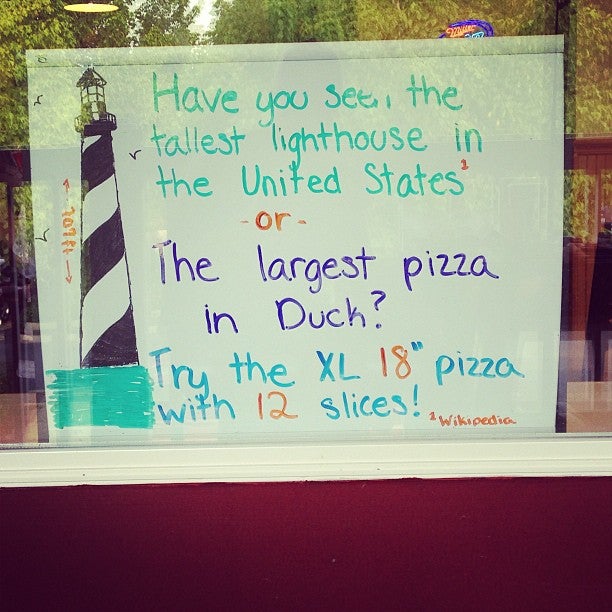 Have you seen the
tallest lighthouse in
the United States¹
- or -
The largest pizza
in Duck?
Try the XL 18" pizza
with 12 slices!
¹Wikipedia
← 207ft →